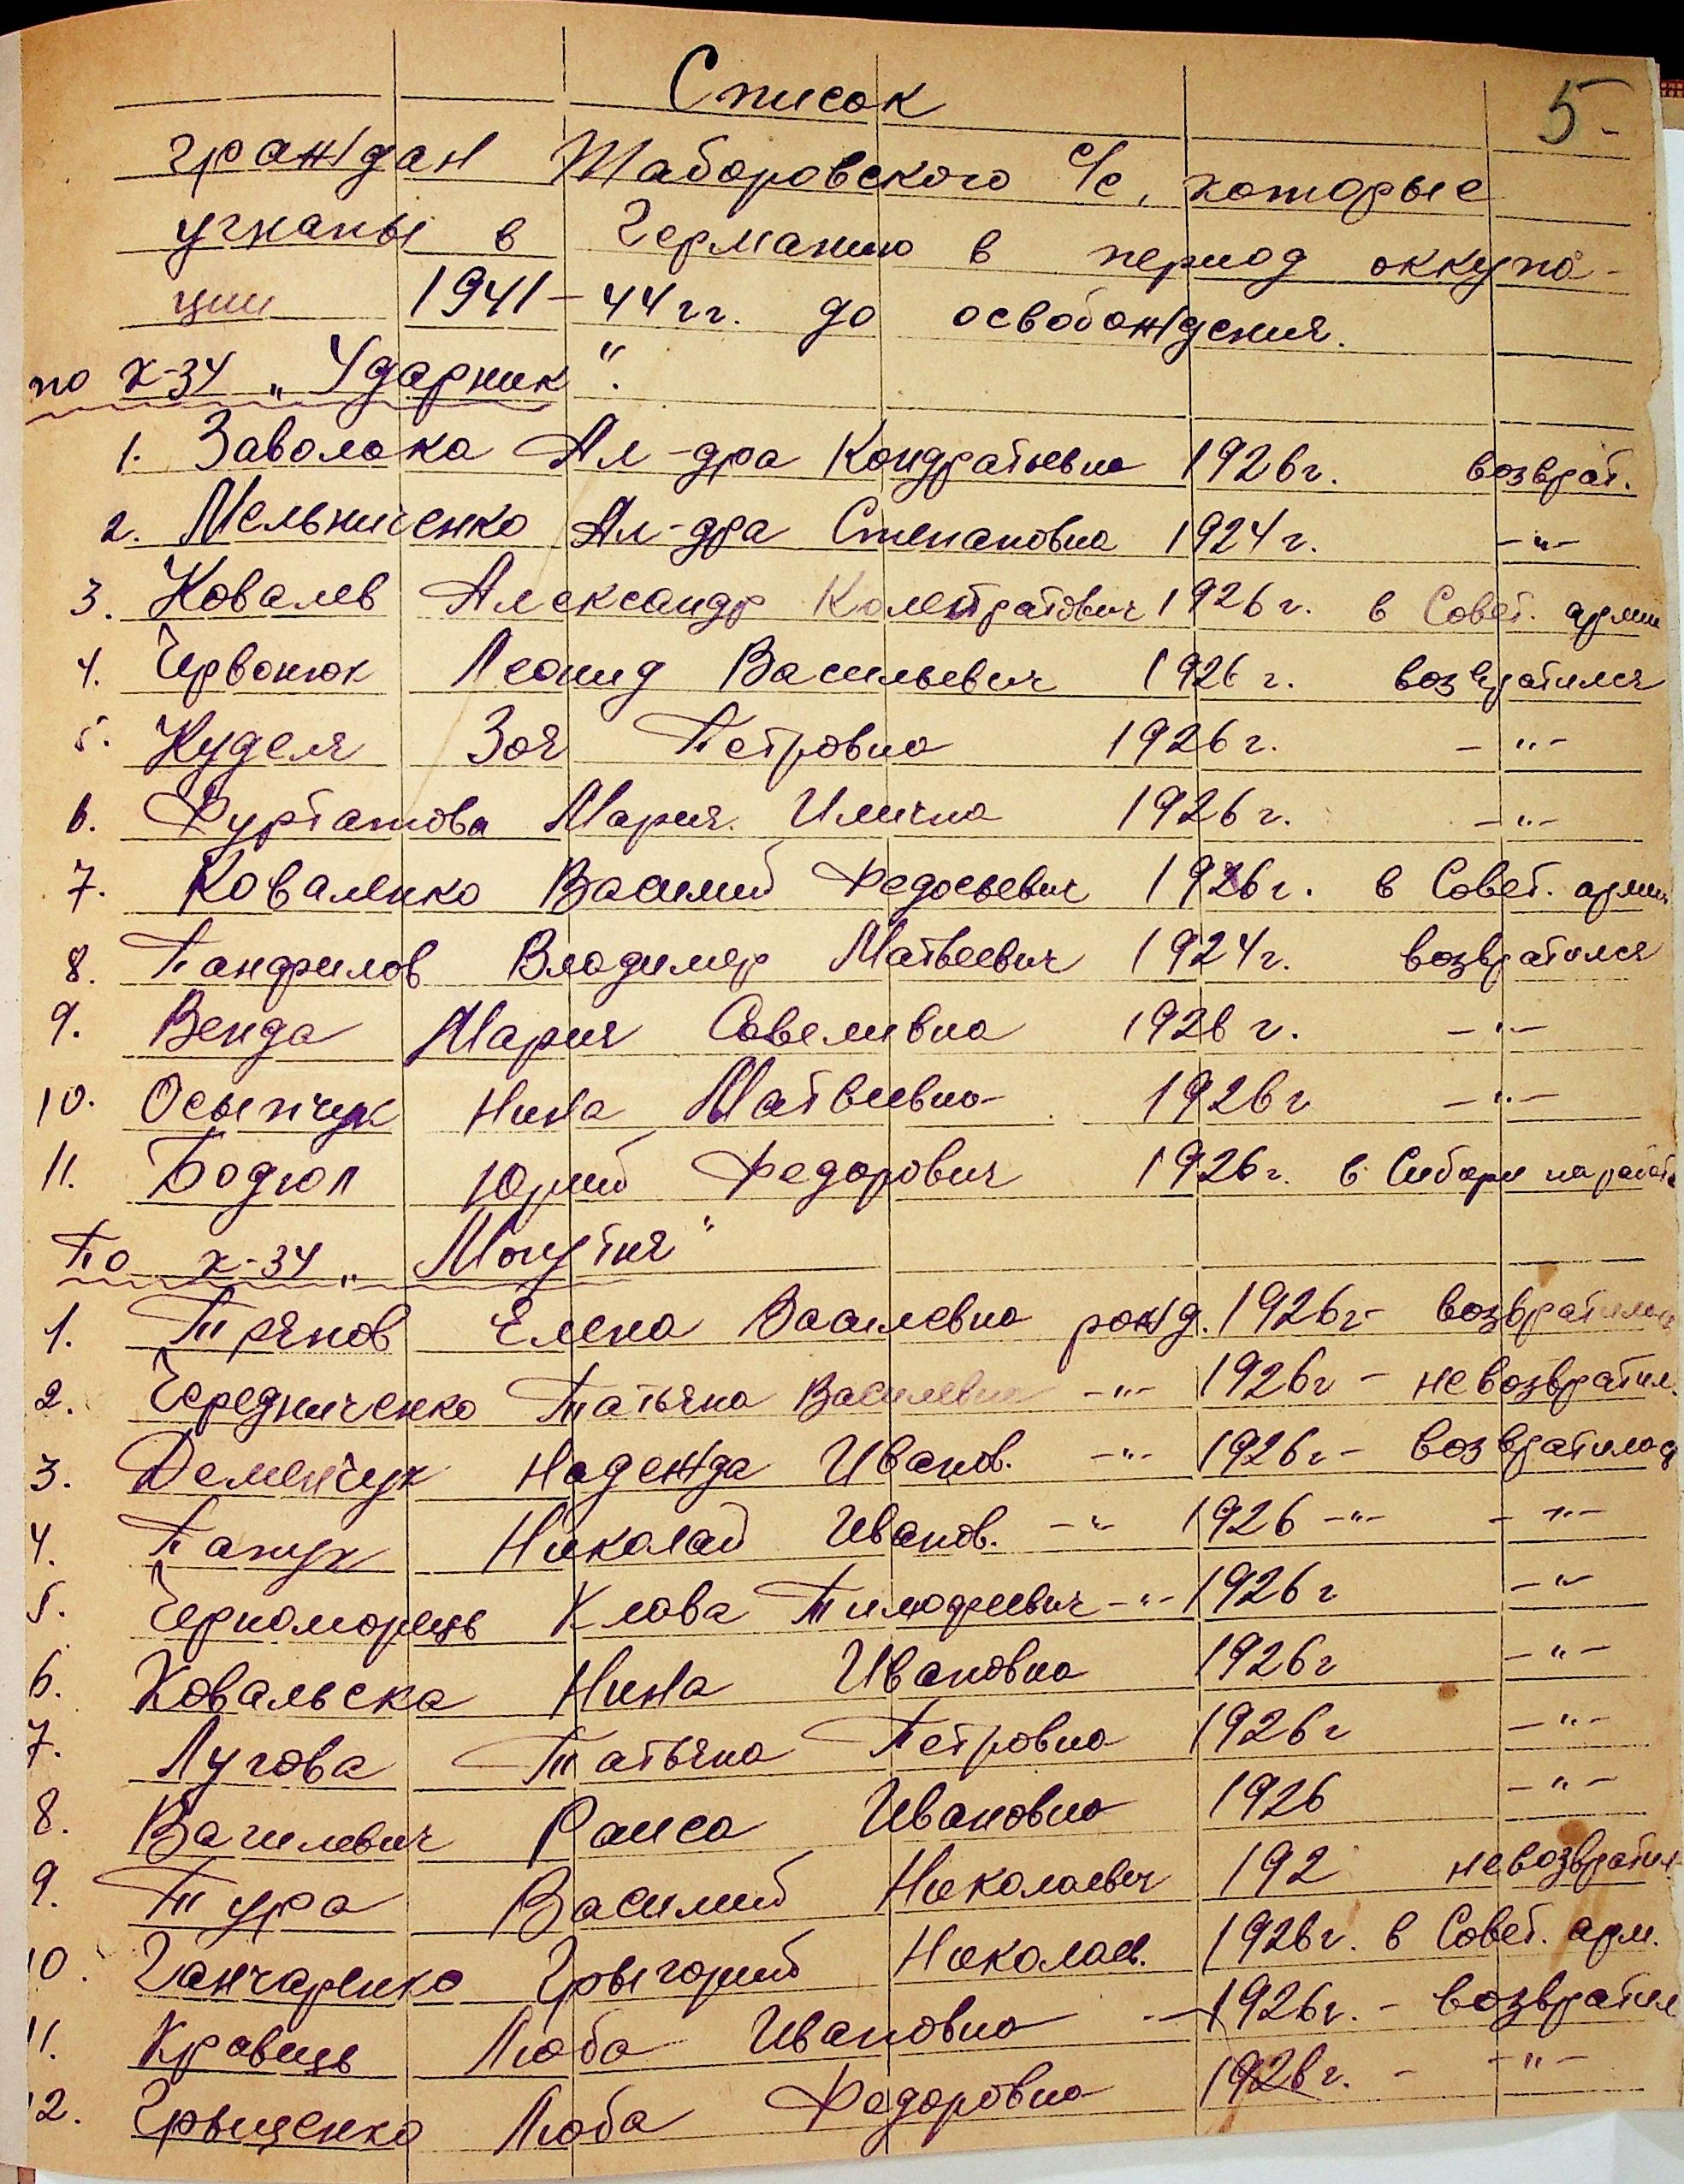 5-
Список
граждан Таборовского с/с, которые
угнаны в Германию в период оккупа-
ции 1941-44 гг. до освобождения.
по к-зу „Ударник".
1. Заволока Ал-дра Кондратьевна 1926г. возврат.
2. Мельниченко Ал-дра Степановна 1924г. -"-
3. Ковалев Александр 1926г. в Совет. армии
4. Червонюк Леонид Васильевич 1926г. возвратился
5. Куделя Зоя Петровна 1926г. -"-
6. Мария Илична 1926г. -"-
7. Коваленко Василий Федосьевич 1926г. в Совет. армии
8. Панфилов Владимер Матвеевич 1924г. возвратился
9. Венда Мария Савеливна 1926г. -"-
10. Осыпчук Нина Матвиевна 1926г -"-
11. Бодюл Юрий Федорович 1926г. в Сибири на работе
По к-зу „Могутня"
1. Прянов Елена Василевна рожд. 1926г- возвратилась
2. Чередниченко Татьяна Василевна -"- 1926г - невозвратил.
3. Деменчук Надежда Иванов. -"- 1926г - возвратилась
4. Николай Иванов. -"- 1926 -"- -"-
5. Черноморець Клава -"- 1926г -"-
6. Ковальска Нина Ивановна 1926г -"-
7. Лугова Татьяна Петровна 1926г -"-
8. Вагилевич Раиса Ивановна 1926 -"-
9. Тура Василий Николаевич 192 невозвратил.
10. Ганчаренко Грыгорий Николаев. 1926г. в Совет. арм.
11. Кравець Люба Ивановна - 1926г. - возвратил
12. Грыщенко Люба Федоровна 1926г. - -"-